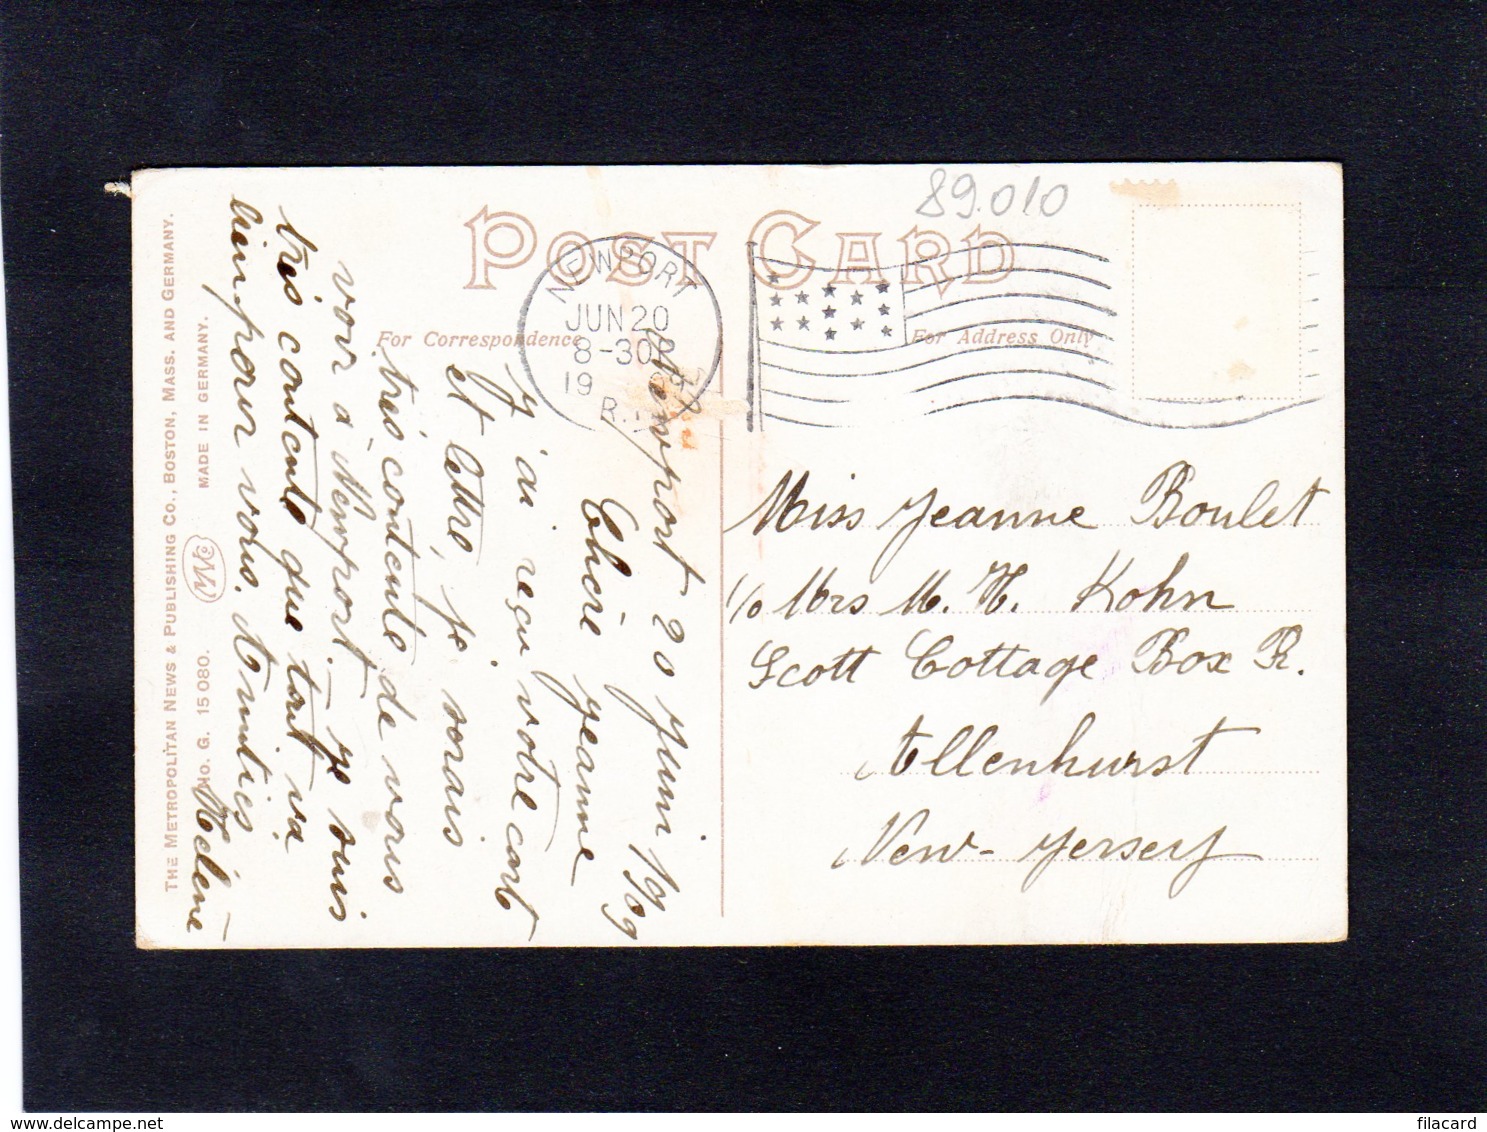 89.010
POST CARD
For Correspondence
For Address Only
NEWPORT
JUN 20
8-30
1909
R.I.
Newport 20 Juin 1909
Chère Jeanne
J'ai reçu votre cart
et lettre, je serais
très contente de vous
voir a Newport. _ Je suis
très contente que tout va
bien pour vous. Amitiés
Hélène
Miss Jeanne Boulet
c/o Mrs M. H. Kohn
Scott Cottage Box R.
Allenhurst
New-Jersey
THE METROPOLITAN NEWS & PUBLISHING CO., BOSTON, MASS. AND GERMANY.
No. G. 15 080.
MADE IN GERMANY.
filacard